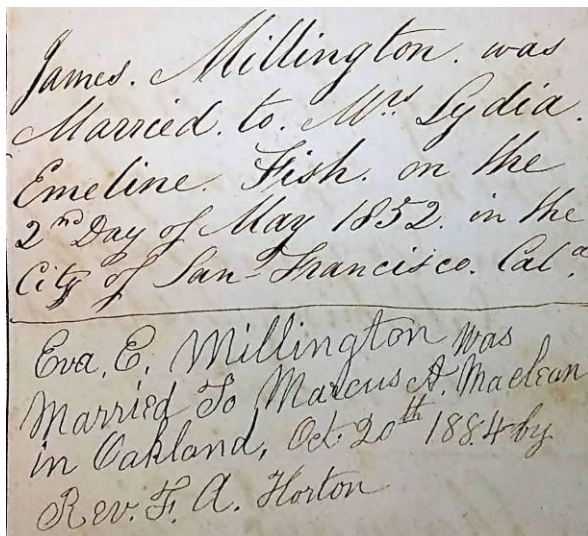 James. Millington. was
Married. to. Mrs Lydia.
Emeline. Fish. on the
2nd Day of May 1852. in the
City of San Francisco. Cala.
Eva, E, Millington was
Married To Marcus A. Maclean
in Oakland, Oct. 20th 1884 by
Rev. F. A. Horton